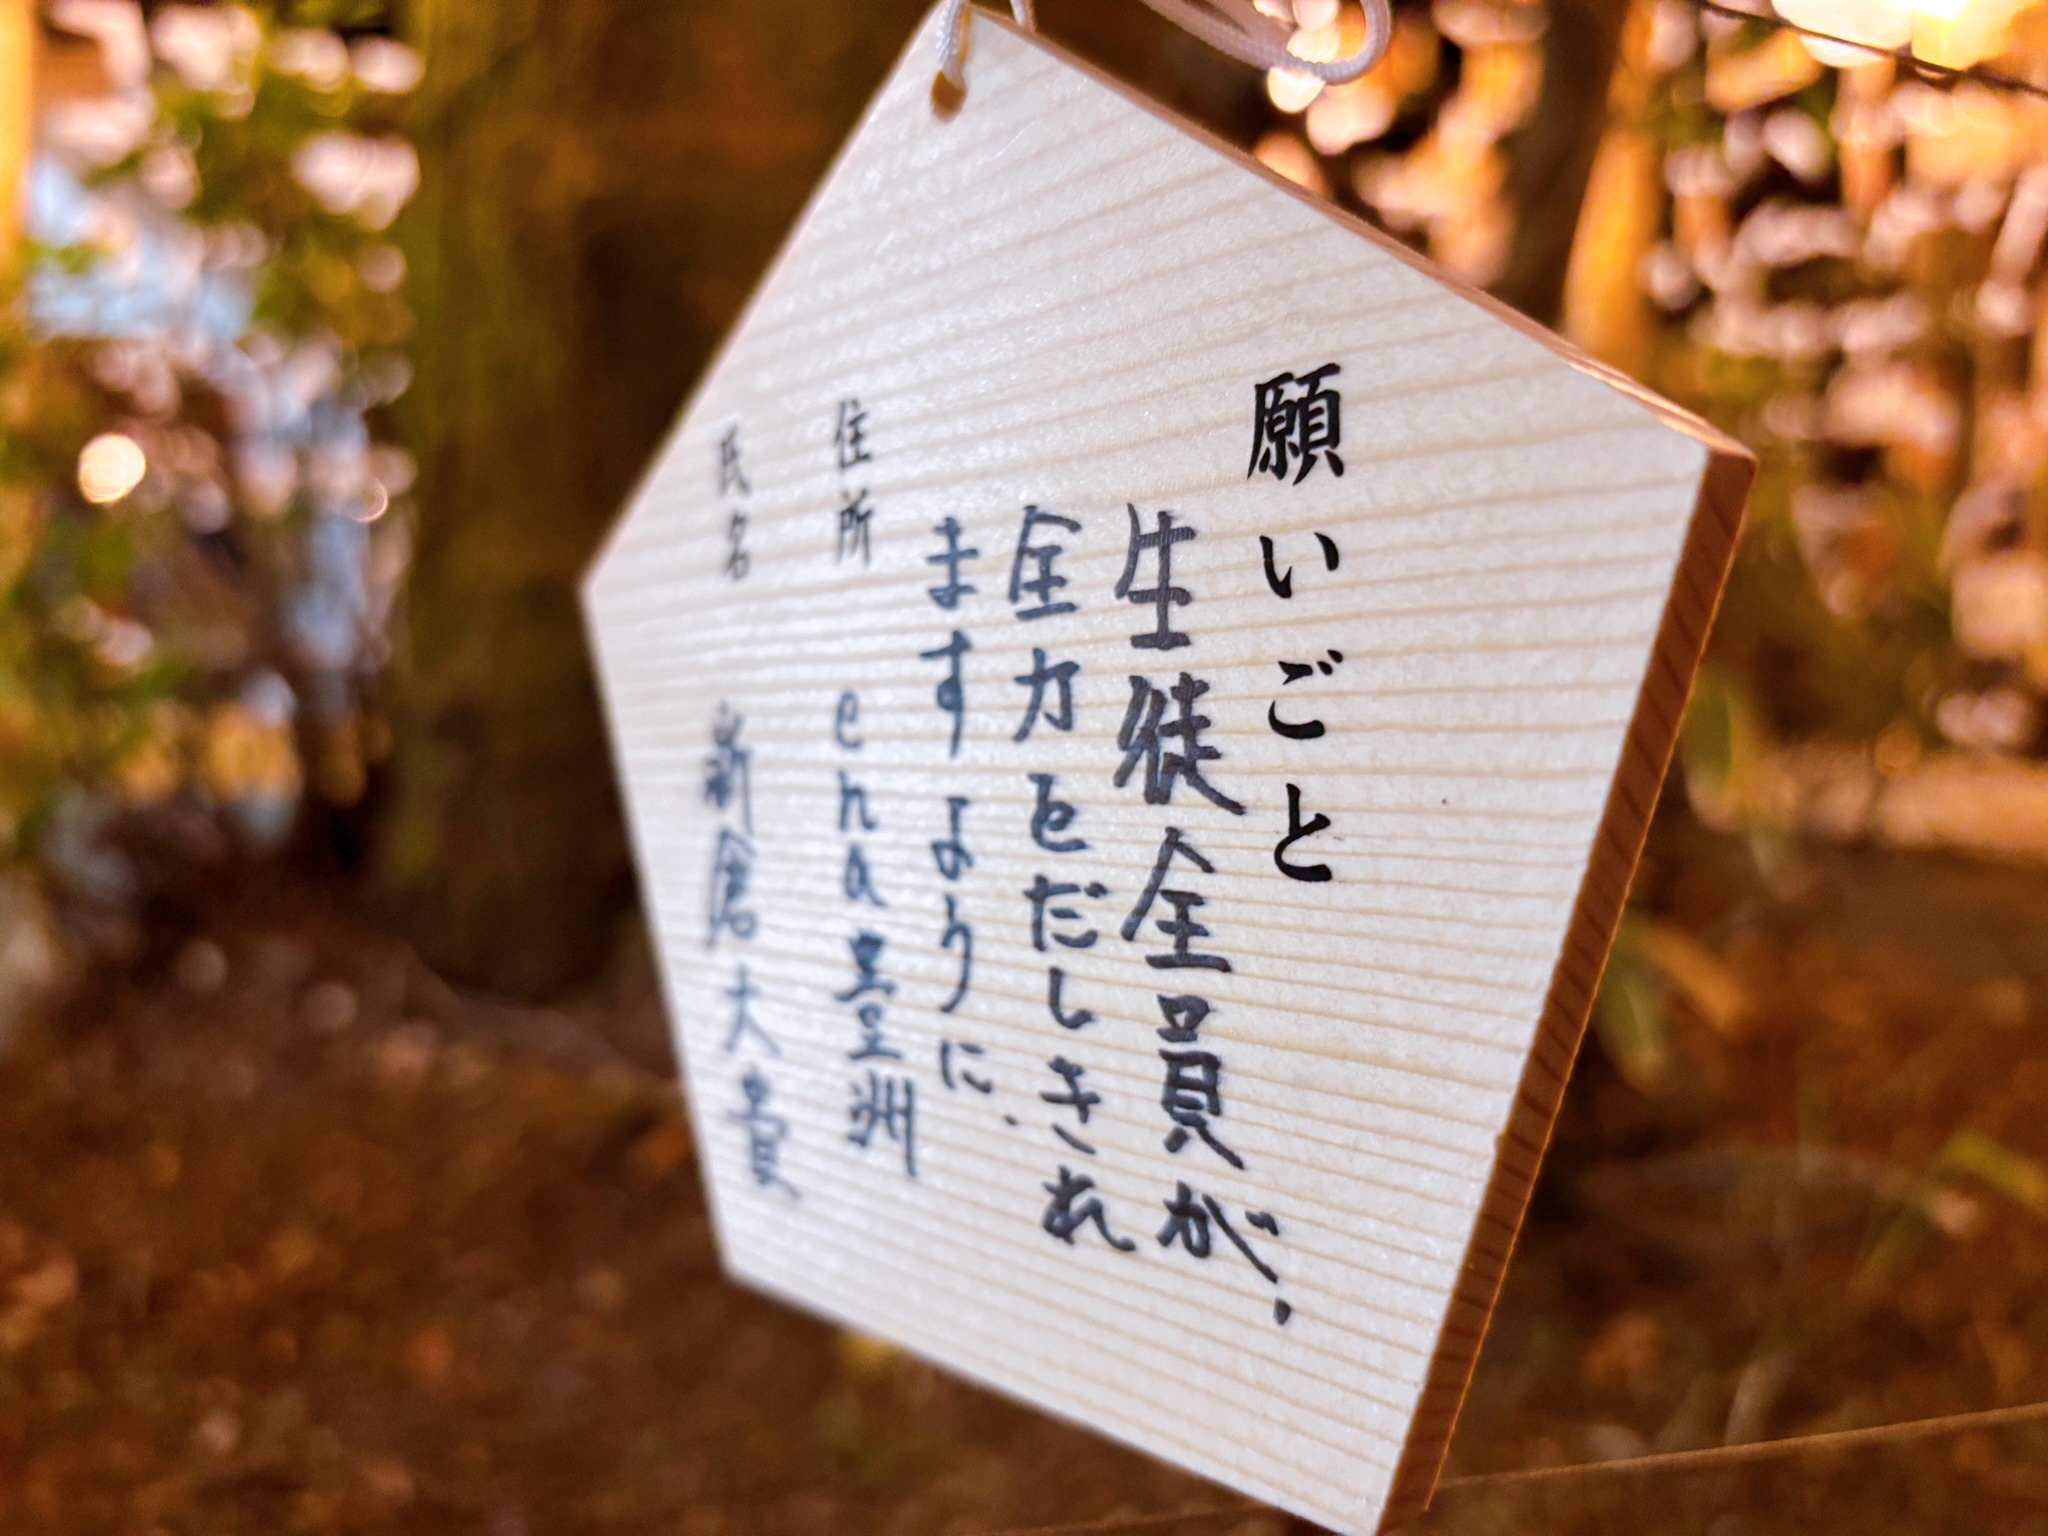 願いごと
生徒全員が、
全力をだしきれ
ますように.
住所 ena豊洲
氏名 新倉大貴